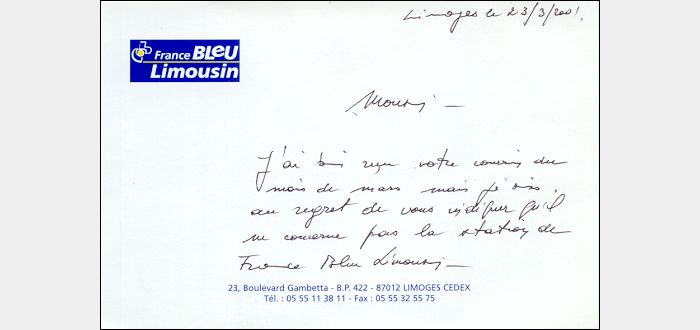 Limoges le 23/3/2001.
France BLEU
Limousin
Monsieur
J'ai bien reçu votre courrier du
mois de mars mais je suis
au regret de vous indiquer qu'il
ne concerne pas la station de
France Bleu Limousin
23, Boulevard Gambetta - B.P. 422 - 87012 LIMOGES CEDEX
Tél. : 05 55 11 38 11 - Fax : 05 55 32 55 75